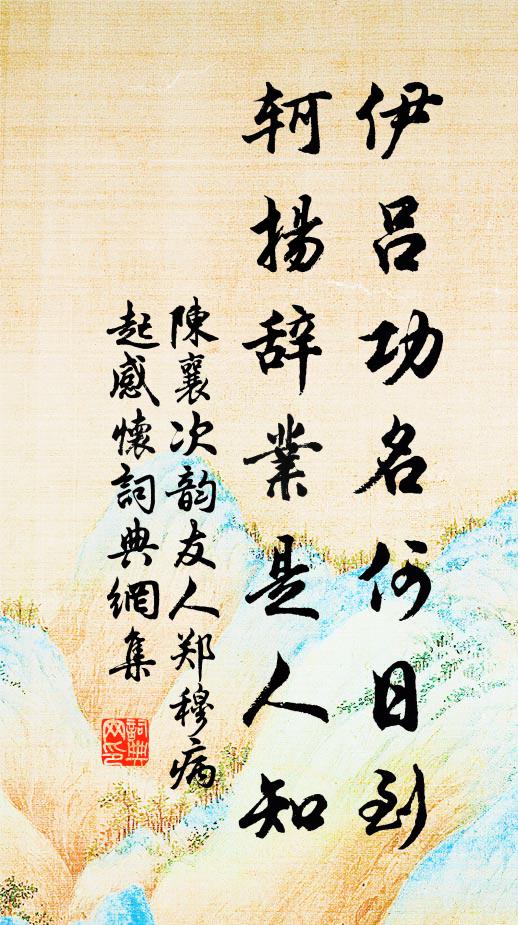 伊呂功名何日到
轲揚辞業是人知
陳襄次韵友人郑穆病
起感懷詞典網集
詞典网印